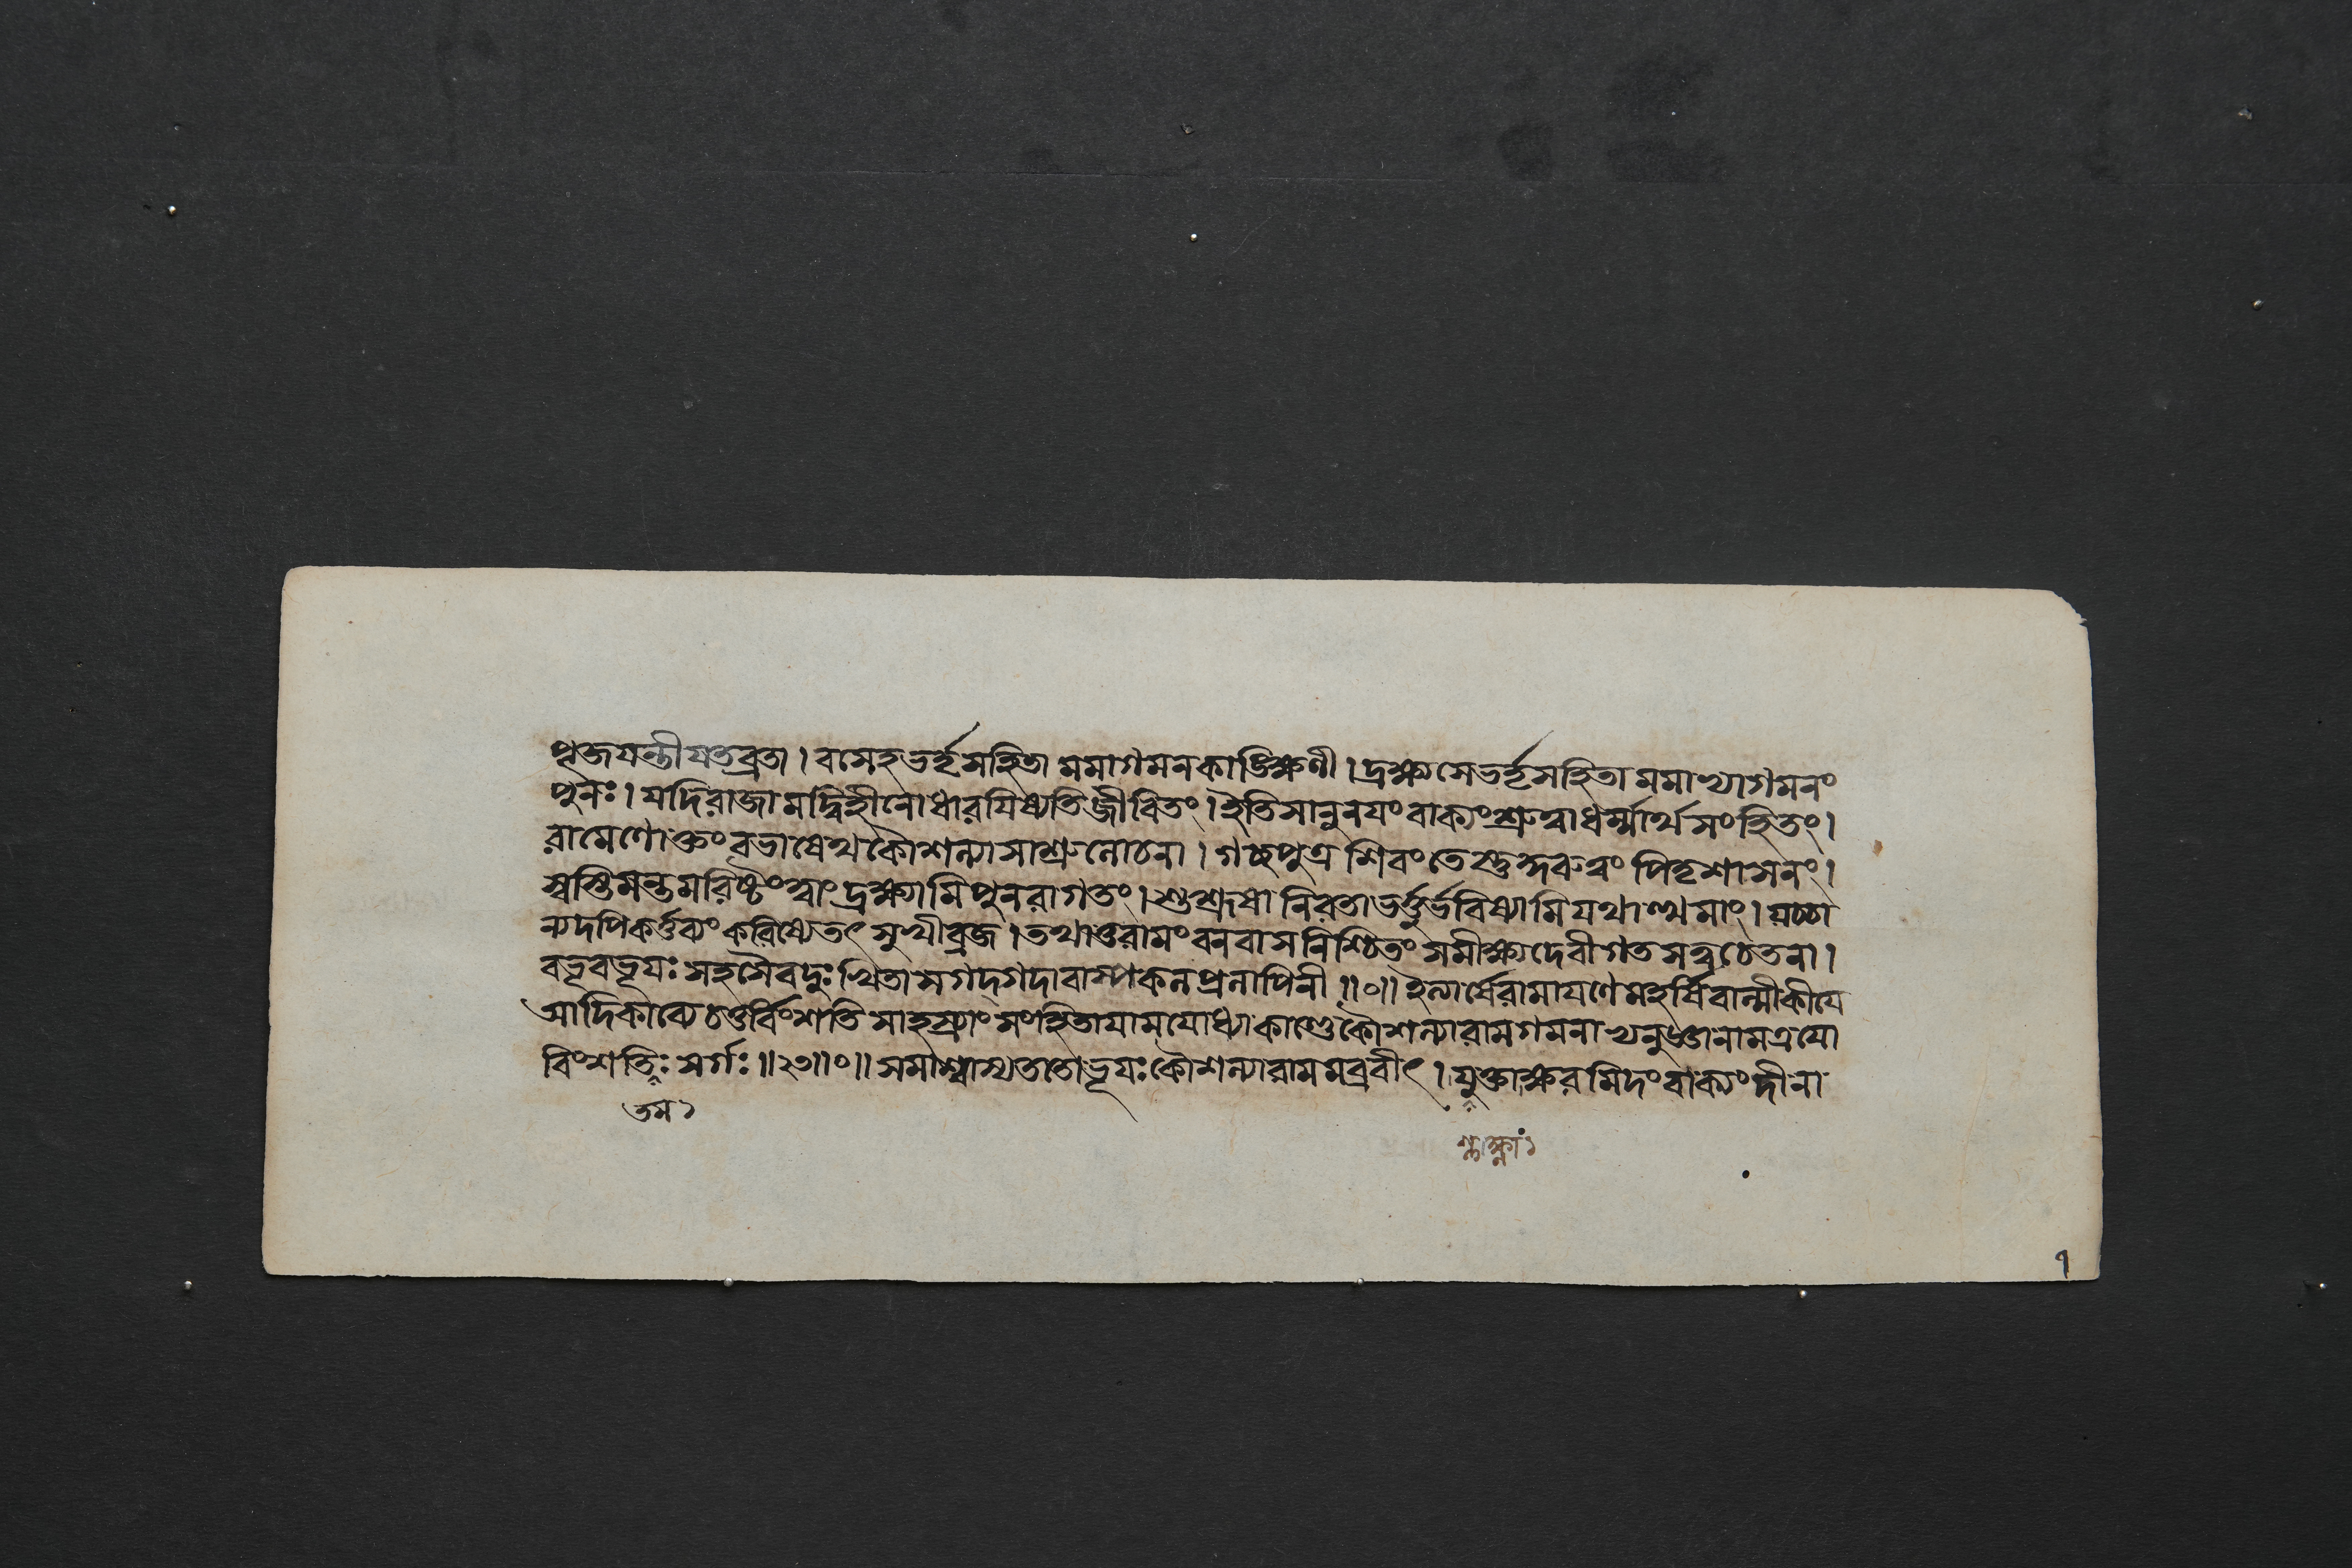 পূজযন্তীযতব্রতা । বসেহভর্তৃসহিতা মমাগমনকাঙ্ক্ষিণী । দ্রক্ষ্যসেভর্তৃসহিতা মমাপ্যাগমনং
পুনঃ । যদিরাজা মদ্বিহীনোধারযিষ্যতিজ্জীবিতং । ইতিসানুনযংবাক্যংশ্রুত্বাধর্ম্মার্থসংহিতং ।
রামেণোক্তংবভাষেথকৌশল্যাসাশ্রুলোচনা । গচ্ছপুত্র শিবংতেস্তু কুরুত্বং পিতৃশাসনং ।
স্বস্তিমন্তমরিষ্টংত্বাং দ্রক্ষ্যামিপুনরাগতং । শুশ্রূষা নিরতাভর্ত্তুর্ভবিষ্যামিযথাত্থমাং । যচ্চা
ন্যদপিকর্ত্তব্যংকরিষ্যেতৎ সুখীব্রজ । তথাতুরামংবনবাসনিশ্চিতং সমীক্ষ্যদেবীগতসত্ত্বচেতনা ।
বভূবভূযঃ সহসৈবদুঃখিতাসগদ্গদাবাষ্পকলপ্রলাপিনী ॥০॥ ইত্যার্ষেরামাযণেমহর্ষিবাল্মীকীযে
আদিকাব্যেচতুর্ব্বিংশতি সাহস্র্যাং সংহিতাযামযোধ্যাকাণ্ডেকৌশল্যারামগমনাভ্যনুজ্ঞানামত্রযো
বিংশতিঃ সর্গঃ ॥২৩॥০॥ সমাশ্বাস্যততোভূযঃকৌশল্যারামমব্রবীৎ । যুক্তাক্ষরমিদংবাক্যংদীনা
তম ১
শ্লক্ষ্ণাং ১